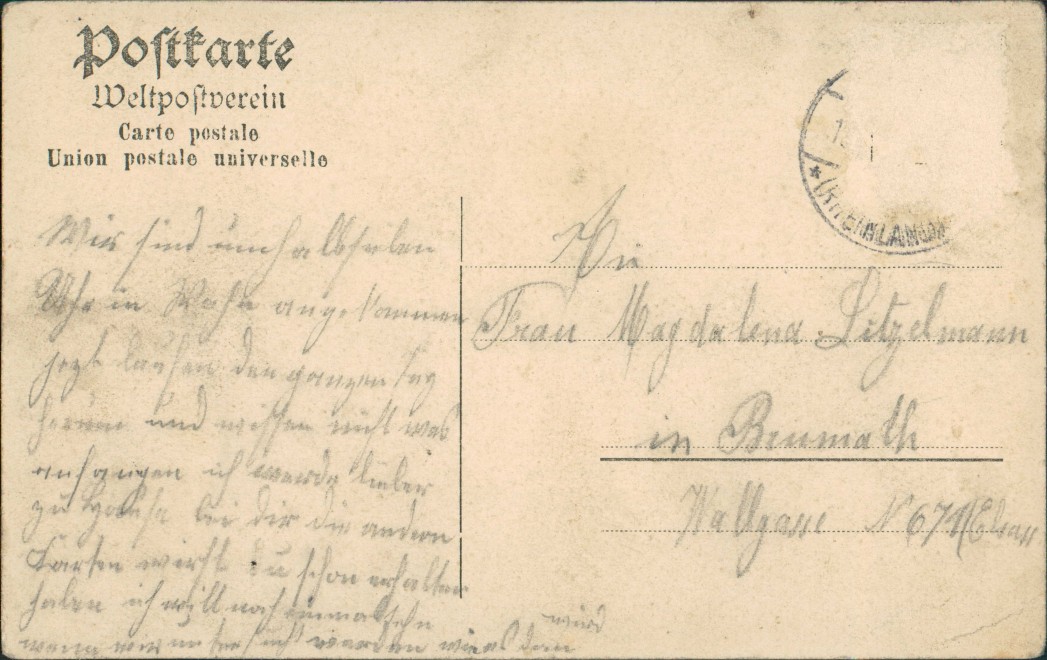 Postkarte
Weltpostverein
Carte postale
Union postale universelle
(RHEINLAND)
Wir sind um halb sieben
Uhr in Wahn angekommen
jezt laufen den ganzen tag
herum und wissen nicht was
anfangen ich werde lieber
zu Hause bei dir die andern
Karten wirst du schon erhalten
haben ich will noch einmal sehn
wenn wir untersucht werden dan
wird
An
Frau Magdalena Litzelmann
in Brumath
Wallgasse N 671 Elsass